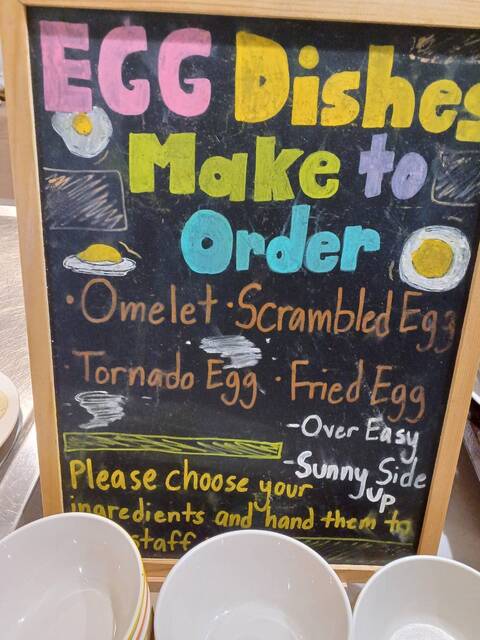 EGG Dishes
Make to
Order
· Omelet · Scrambled Egg
· Tornado Egg · Fried Egg
- Over Easy
- Sunny Side
up
Please choose your
ingredients and hand them to
staff